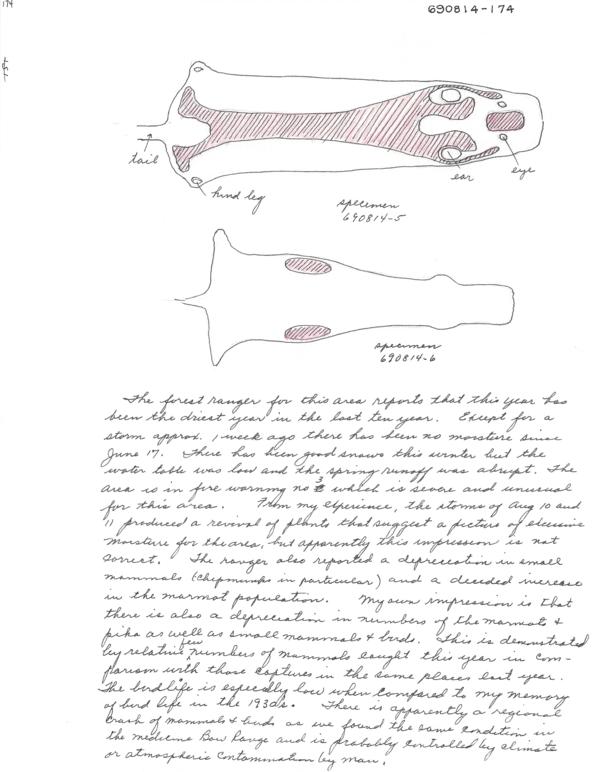 174
690814-174
tail
hind leg
ear
eye
specimen
690814-5
specimen
690814-6
The forest ranger for this area reports that this year has
been the driest year in the last ten year. Except for a
storm approx. 1 week ago there has been no moisture since
June 17. There has been good snows this winter but the
water table was low and the spring runoff was abrupt. The
area is in fire warning no 3 which is severe and unusual
for this area. From my experience, the storms of Aug 10 and
11 produced a revival of plants that suggest a picture of
moisture for the area, but apparently this impression is not
correct. The ranger also reported a depreciation in small
mammals (chipmunks in particular) and a decided increase
in the marmot population. My own impression is that
there is also a depreciation in numbers of the marmots &
pika as well as small mammals & birds. This is demonstrated
by relative few numbers of mammals caught this year in com-
parison with those captures in the same places last year.
The bird life is especially low when compared to my memory
of bird life in the 1930s. There is apparently a regional
crash of mammals & birds as we found the same condition in
the medicine Bow Range and is probably controlled by climate
or atmospheric contamination by man.